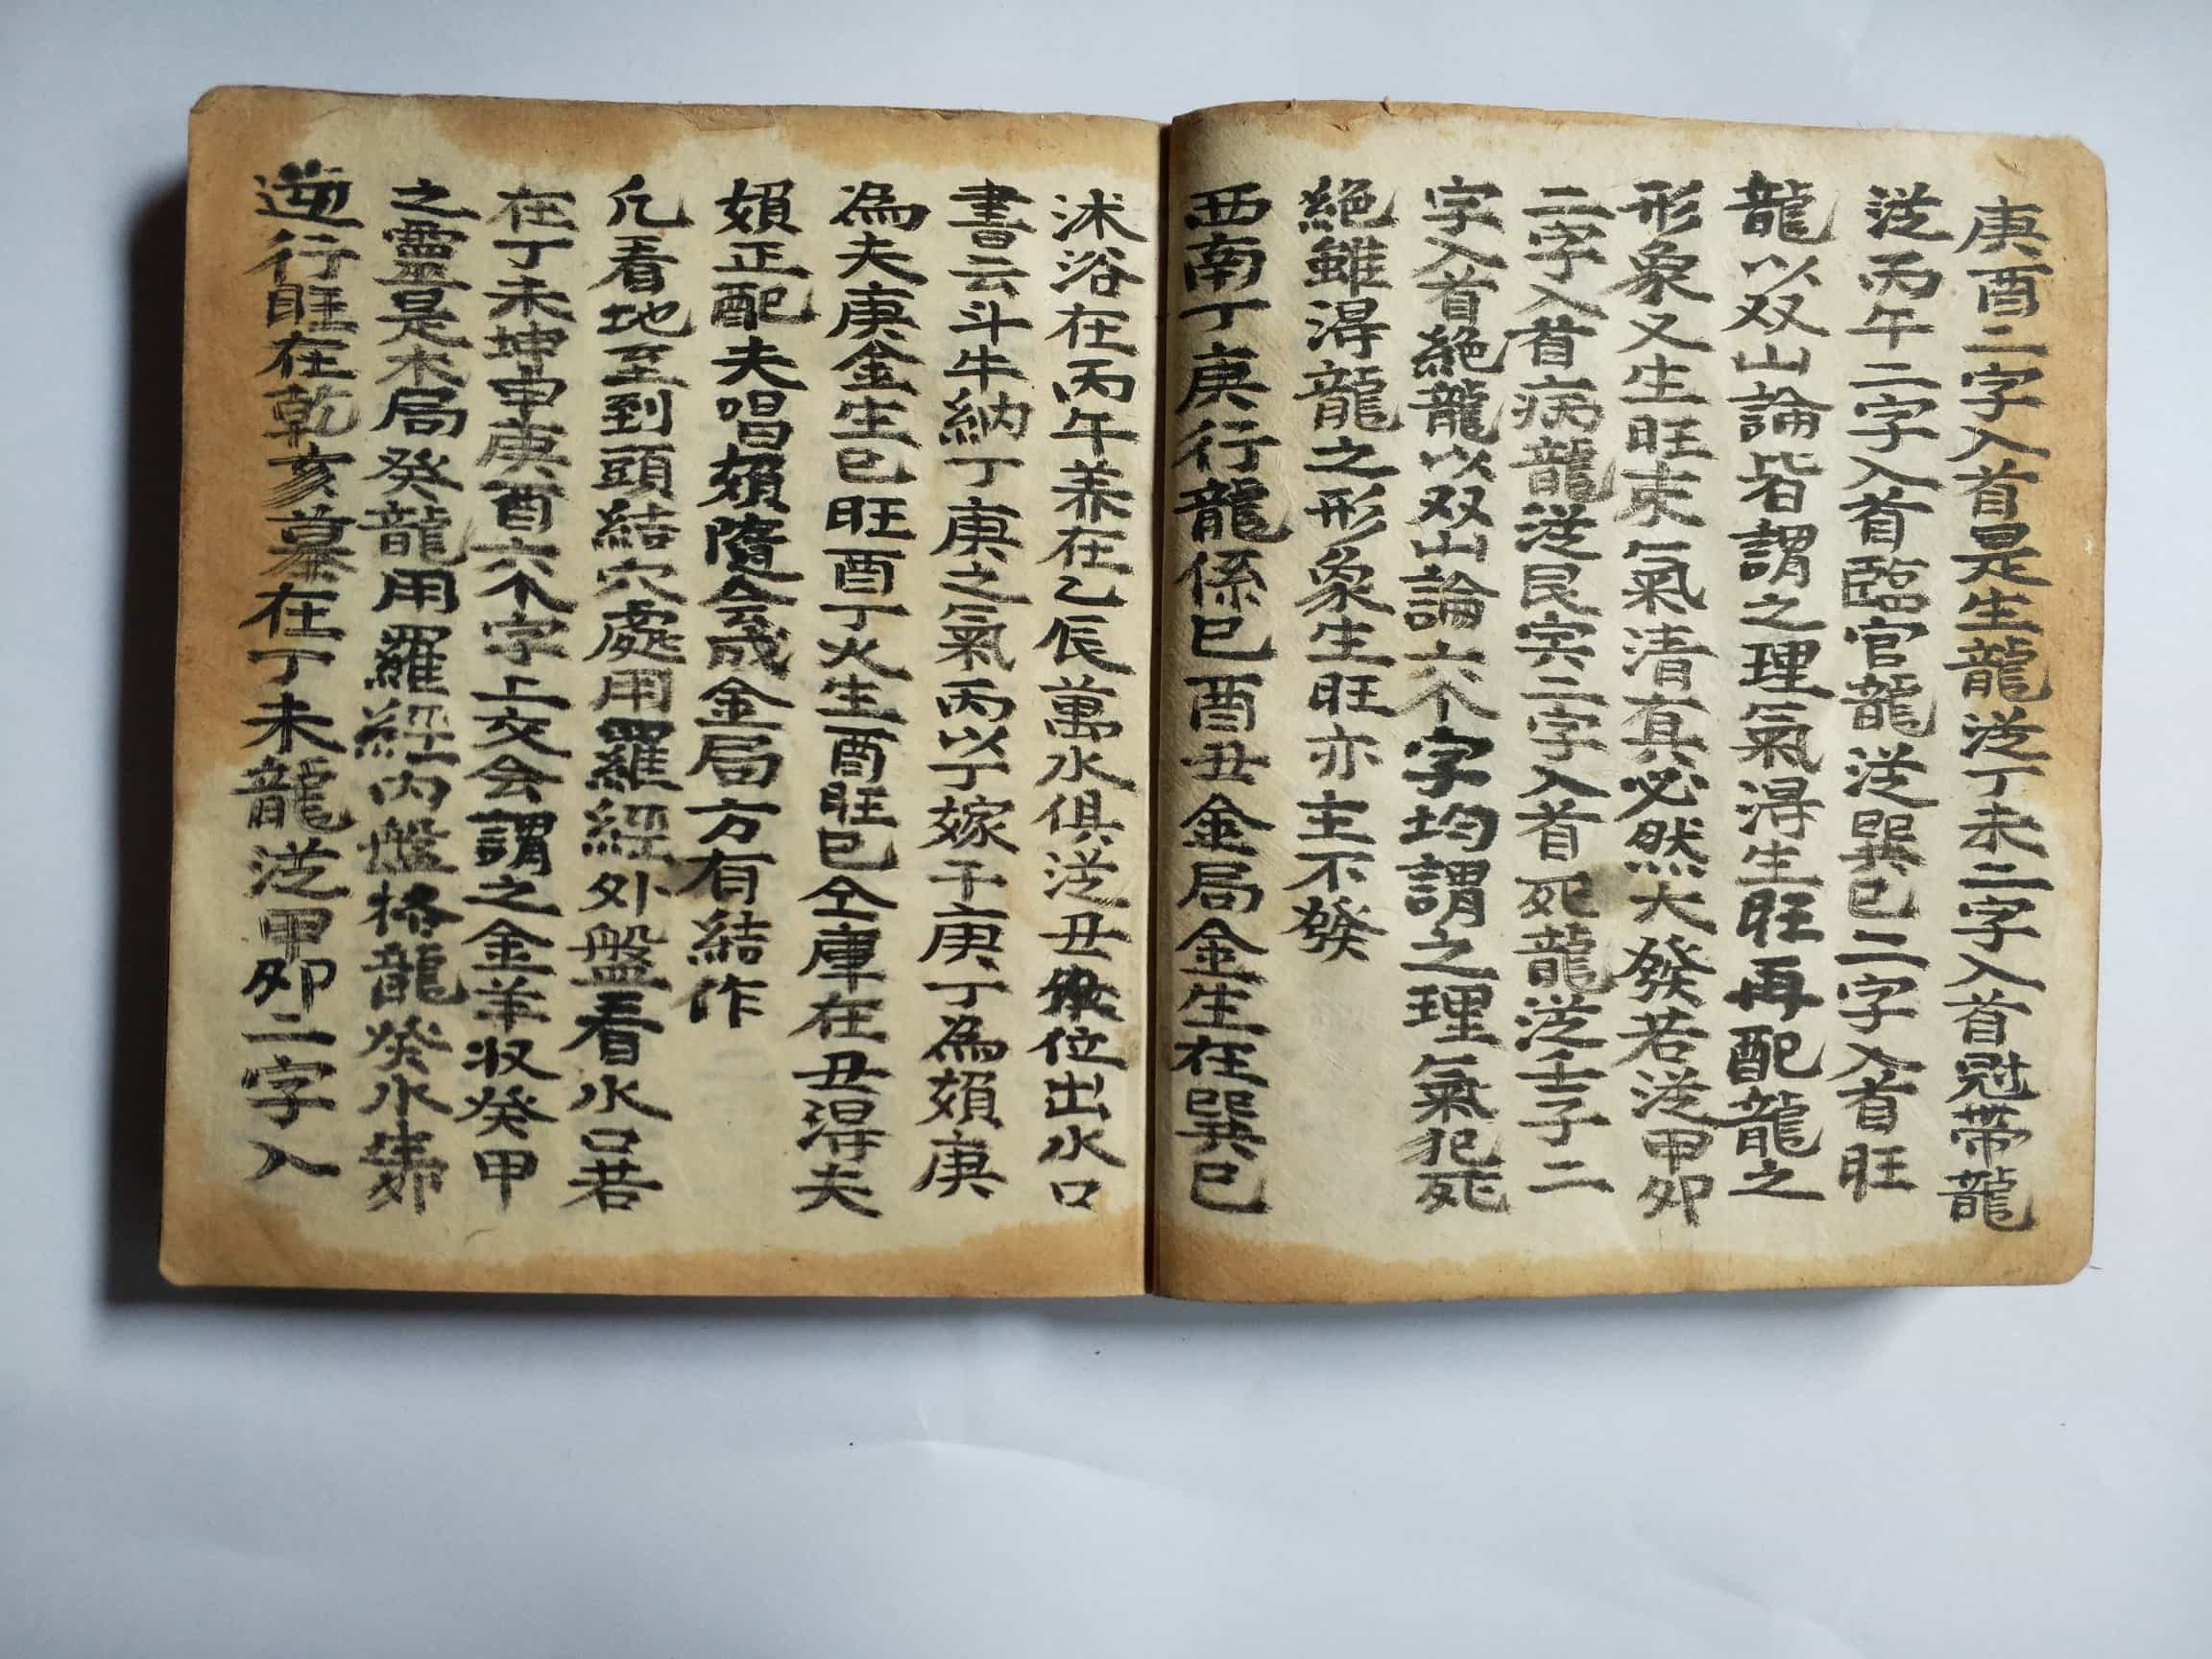 庚酉二字入首是生龍從丁未二字入首冠帶龍
從丙午二字入首臨官龍從巽巳二字入首旺
龍以双山論皆謂之理氣得生旺再配龍之
形象又生旺束氣清真必然大發若從甲卯
二字入首病龍從艮寅二字入首死龍從壬子二
字入首絕龍以双山論六个字均謂之理氣犯死
絕雖得龍之形象生旺亦主不發
西南丁庚行龍係巳酉丑金局金生在巽巳
沐浴在丙午養在乙辰萬水俱從丑位出水口
書云斗牛納丁庚之氣丙以丁嫁于庚丁為頞庚
為夫庚金生巳旺酉丁火生酉旺巳仝庫在丑得夫
頞正配夫唱頞隨会成金局方有結作
凡看地至到頭結穴處用羅經外盤看水口若
在丁未坤申庚酉六个字上交会謂之金羊收癸甲
之靈是木局癸龍用羅經內盤格龍癸水生卯
逆行旺在乾亥墓在丁未龍從甲卯二字入